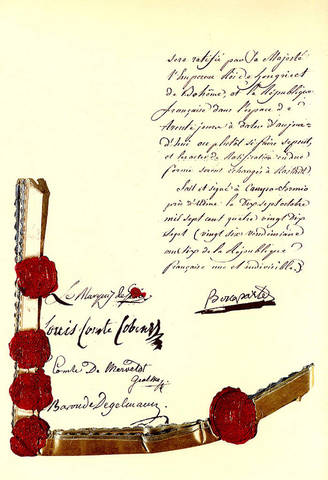 sera ratifié par Sa Majesté
l'Empereur Roi de hongrie et
de Bohême, et la République
française dans l'espace de
trente jours à dater d'aujour-
d'hui ou plutôt si faire se peut,
et les actes de Ratification en due
forme seront échangés à Rastadt.
fait et signé à Campo-formio
près d'Udine le Dix sept octobre
mil sept cent quatre vingt Dix
sept (vingt six vendémiaire
an six de la République
française une et indivisible.)
Le Marquis de Gallo
Bonaparte
Louis Comte Cobenzl
Comte De Merveldt
Baron de Degelmann